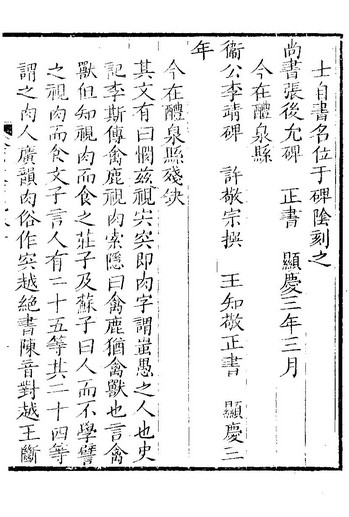 士自書名位于碑陰刻之
尚書張後允碑　正書　顯慶三年三月
今在醴泉縣
衛公李靖碑　許敬宗撰　王知敬正書　顯慶三
年
今在醴泉縣殘缺
其文有曰憫茲視宍宍即肉字謂蚩愚之人也史
記李斯傳禽鹿視肉索隱曰禽鹿猶禽獸也言禽
獸但知視肉而食之莊子及蘇子曰人而不學譬
之視肉而食文子言人有二十五等其二十四等
謂之肉人廣韻肉俗作宍越絕書陳音對越王斷